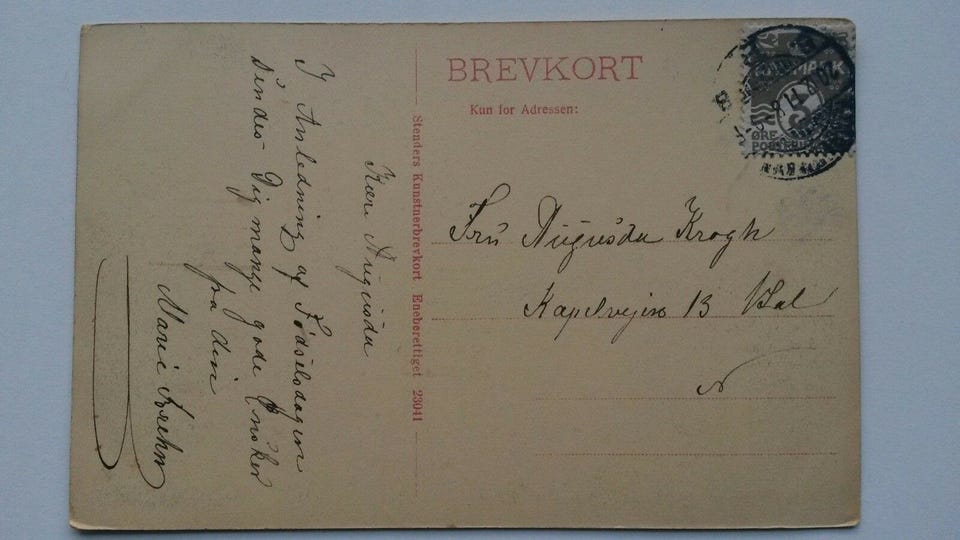 BREVKORT
Kun for Adressen:
DANMARK
3
ØRE
Stenders Kunstnerbrevkort Eneberettiget 23041
Fru Augusda Krogh
Kapelvejen 13 Sal
N
Kære Augusda
I Anledning af Fødselsdagen
sendes Dig mange gode Ønsker
fra din
Marie Krehn